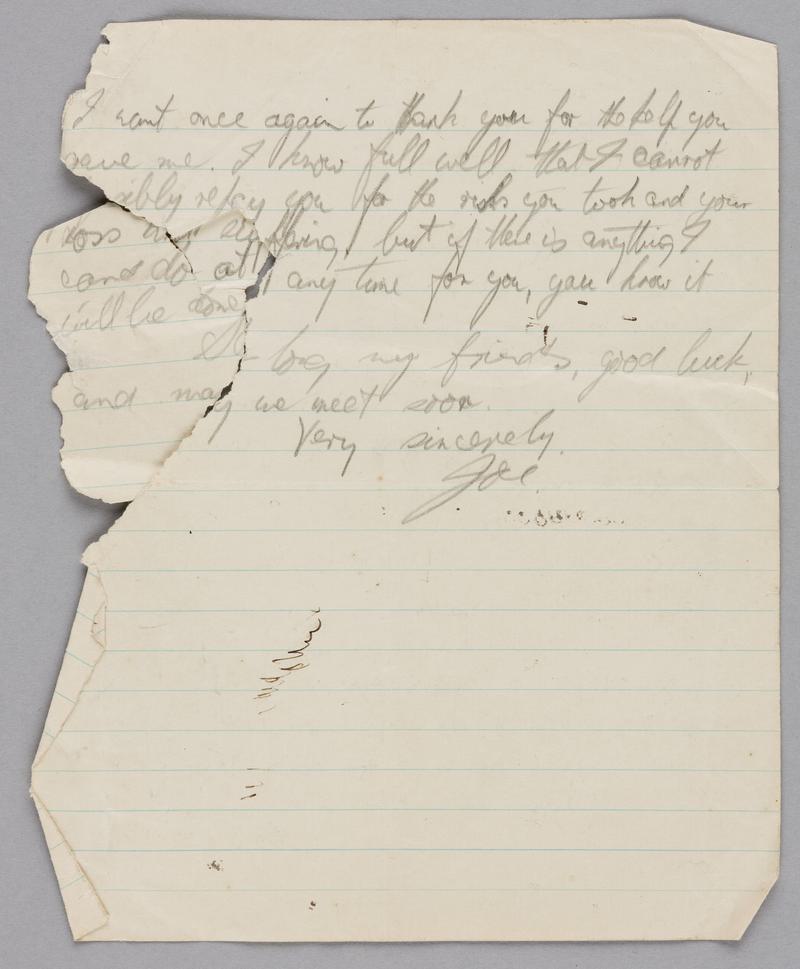 I want once again to thank you for the help you
gave me. I know full well that I cannot
sibly repay you for the risks you took and your
loss and suffering, but if there is anything I
can do at any time for you, you know it
will be done.
So long my friends, good luck,
and may we meet soon.
Very sincerely.
Joe.